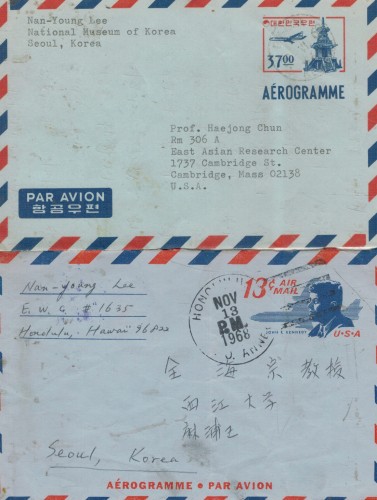 Nan-Young Lee
National Museum of Korea
Seoul, Korea
대한민국우편
37.00
AÉROGRAMME
Prof. Haejong Chun
Rm 306 A
East Asian Research Center
1737 Cambridge St.
Cambridge, Mass 02138
U.S.A.
PAR AVION
항공우편
Nan-young Lee
E.W.C. # 1635
Honolulu, Hawaii 96822
HONOLULU
NOV
13
P.M.
1968
13¢ AIR
MAIL
JOHN F. KENNEDY
U·S·A
全海宗教授
西江大学
麻浦区
Seoul, Korea
AÉROGRAMME • PAR AVION